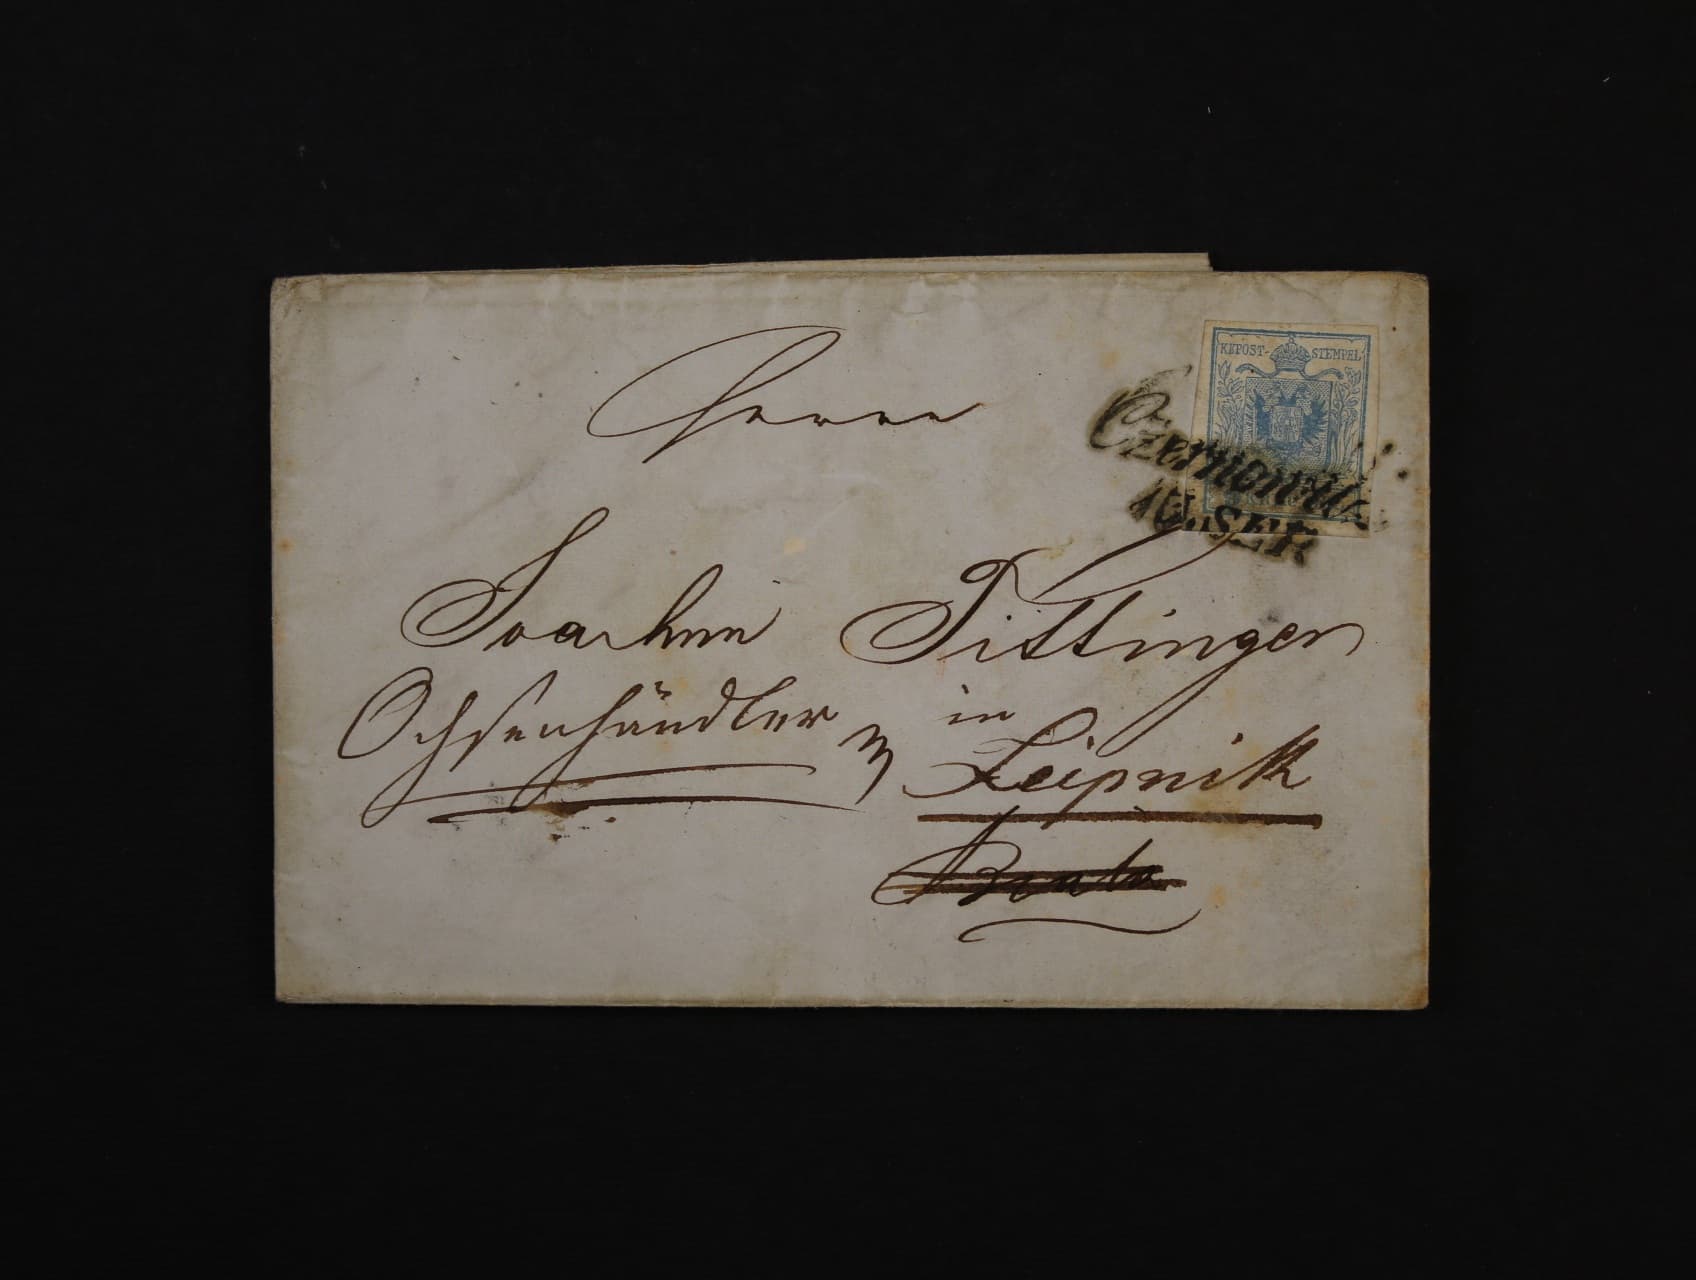 KKPOST-STEMPEL
Czernowitz
SEP
Herrn
Joachim Tittinger
Ochsenhändler in
Leipnik